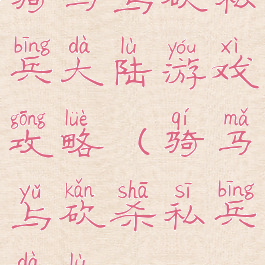 bīng dà lù yóu xì
兵大陆游戏
gōng lüè qí mǎ
攻略（骑马
yǔ kǎn shā sī bīng
与砍杀私兵
dà lù